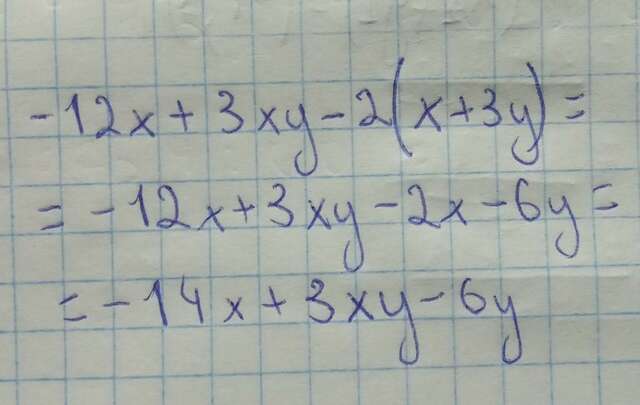 -12x+3xy-2(x+3y)=
=-12x+3xy-2x-6y=
=-14x+3xy-6y